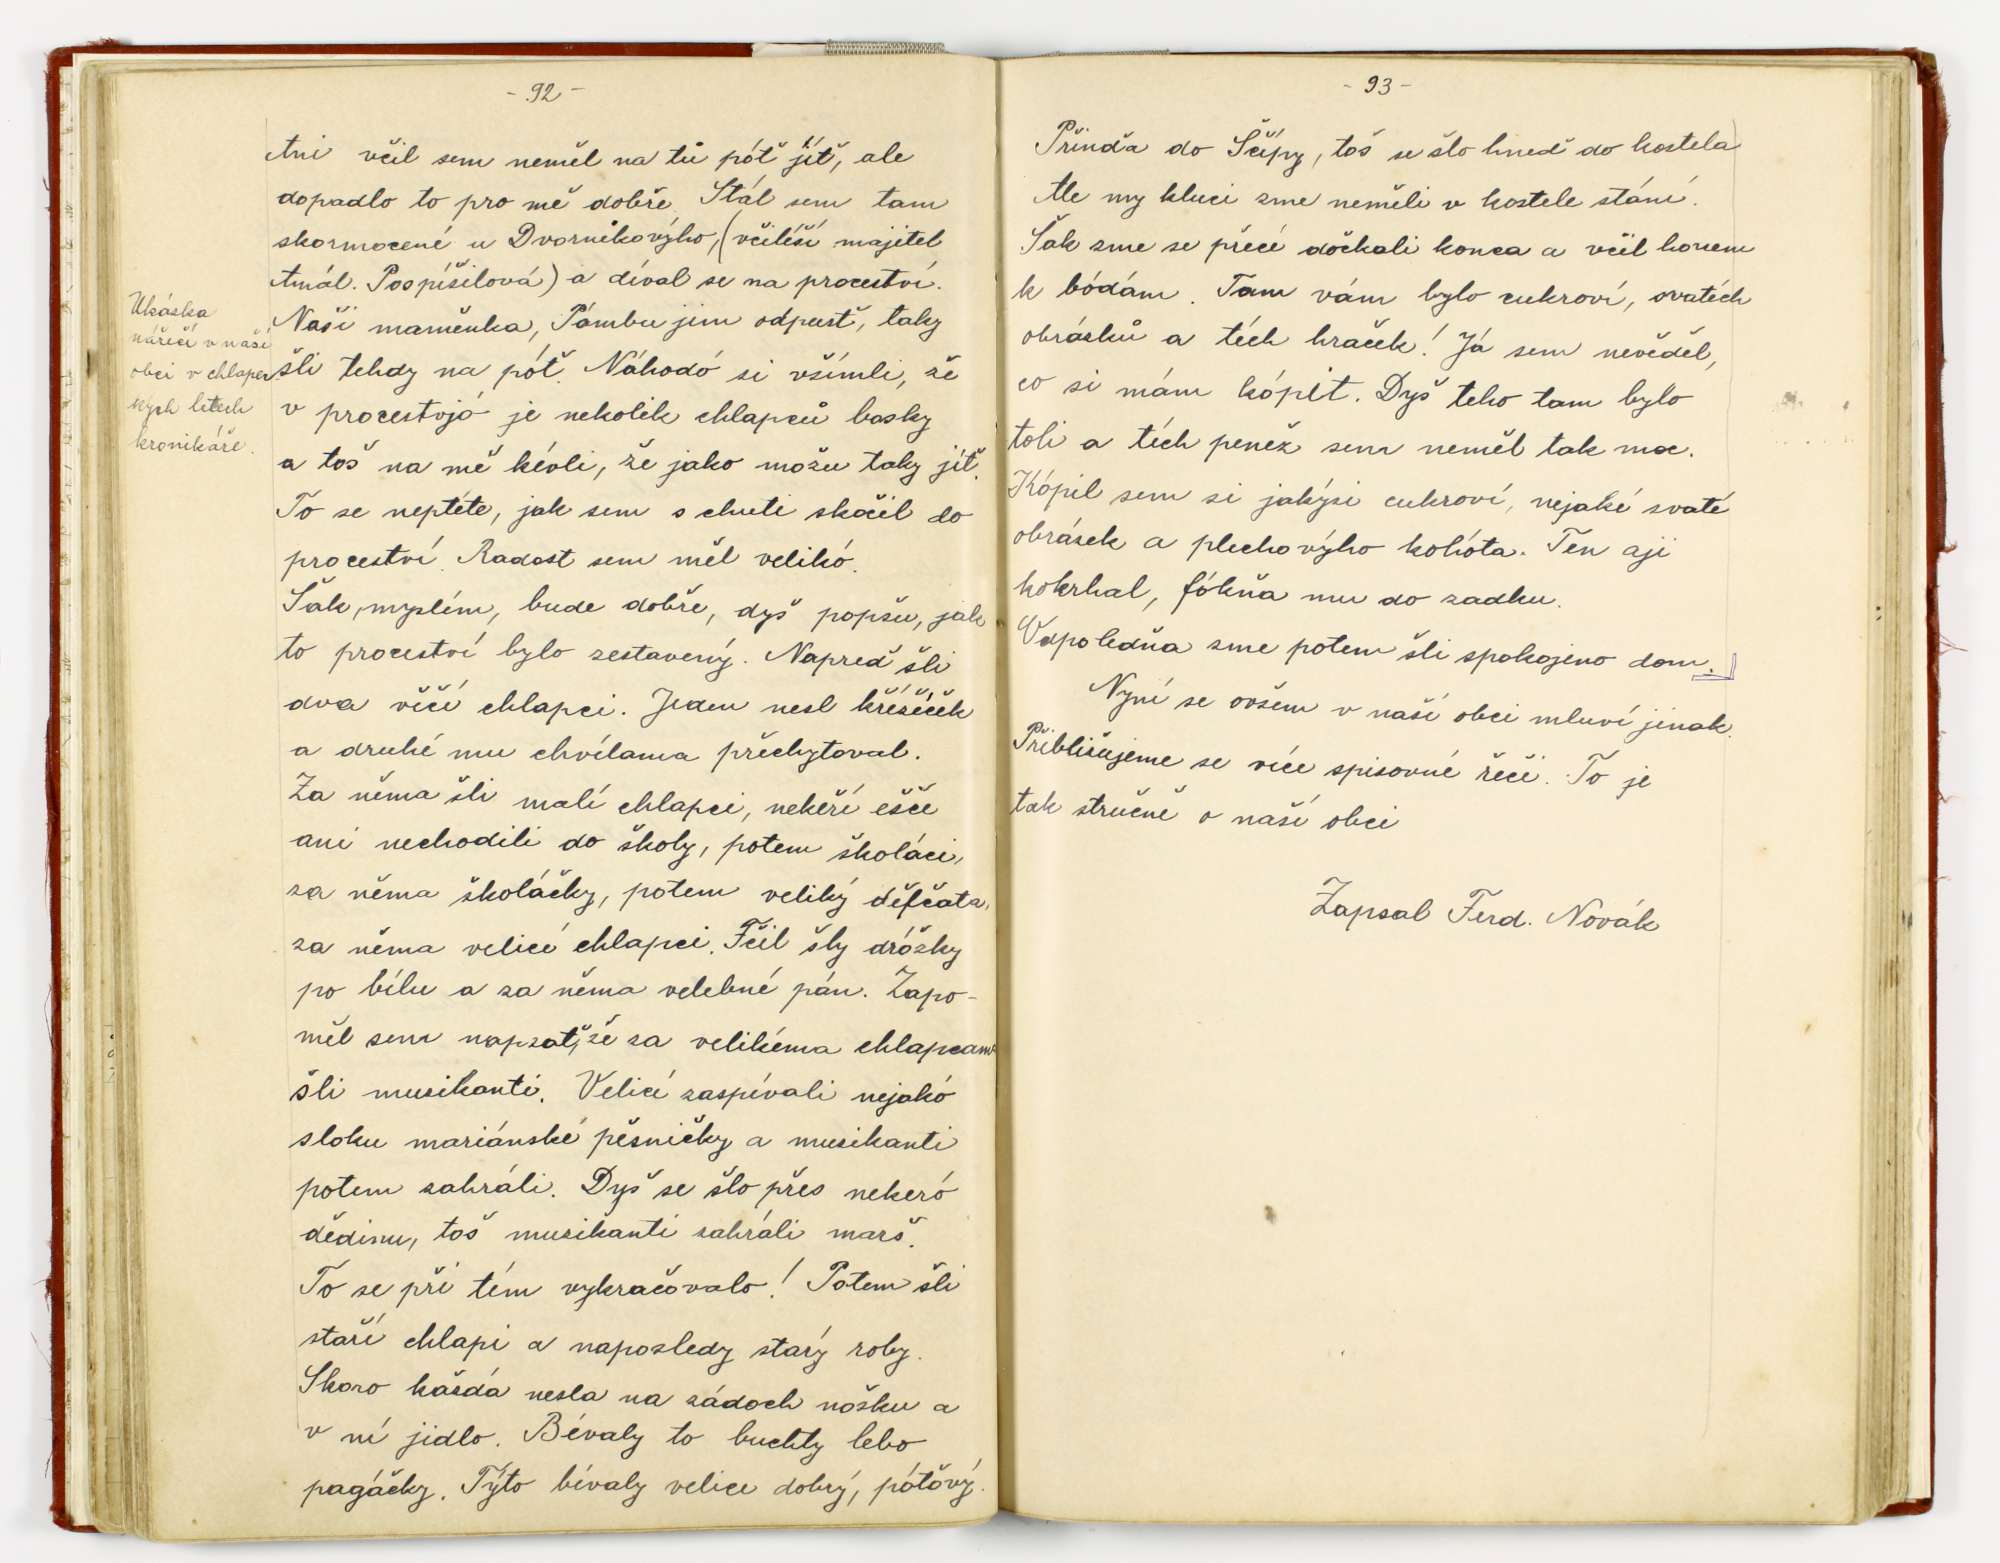 - 92 -
Ani včil sem neměl na tů póť jíť, ale
dopadlo to pro mě dobře. Stál sem tam
skormocené u Dvorníkovýho, (včiléší majitel
Amál. Pospíšilová) a díval se na procestvi.
Naši maměnka, Pámbu jim odpusť, taky
šli tehdy na póť. Náhodó si všímli, že
v procestvjó je nekolik chlapců bosky
a tož na mě kévli, že jako možu taky jíť.
To se neptéte, jak sem s chuti skočil do
procestvi. Radost sem měl velikó.
Šak, myslím, bude dobře, dyž popšu, jak
to procestvi bylo zestavený. Napřeď šli
dva věčí chlapci. Jeden nesl křéžéček
a druhé mu chvílama přechytoval.
Za něma šli malí chlapci, nekeří ešče
ani nechodili do školy, potem školáci,
za něma školáčky, potem veliký děfčata,
za něma velicí chlapci. Fčil šly dróžky
po bílu a za něma velebné pán. Zapo-
měl sem napsať, že za velikéma chlapcama
šli muzikanti. Velicí zaspívali nejakó
sloku mariánské pěsničky a muzikanti
potem zahráli. Dyž se šlo přes nekeró
dědinu, tož muzikanti zahráli marš.
To se při tém vykračovalo! Potem šli
staří chlapi a naposledy starý roby.
Skoro každá nesla na zádoch nóšku a
v ní jidlo. Bévaly to buchty lebo
pagáčky. Týto bévaly velice dobrý, póťový.
Ukázka
nářečí v naší
obci v chlapec-
kých letech
kronikáře.
- 93 -
Přinďa do Ščípy, tož se šlo hneď do kostela
Ale my kluci zme neměli v kostele stání.
Šak zme se přeci dočkali konca a včil honem
k bódám. Tam vám bylo cukroví, svatéch
obrázků a téch hraček! Já sem nevěděl,
co si mám kópit. Dyž teho tam bylo
toli a téch peněz sem neměl tak moc.
Kópil sem si jakýsi cukroví, nejaké svaté
obrázek a plechovýho kohóta. Ten aji
kokrhal, fókňa mu do zadku.
Odpoledňa zme potem šli spokojeno dom.
Nyní se ovšem v naší obci mluví jinak.
Přibližujeme se více spisovné řeči. To je
tak stručně o naší obci
Zapsal Ferd. Novák